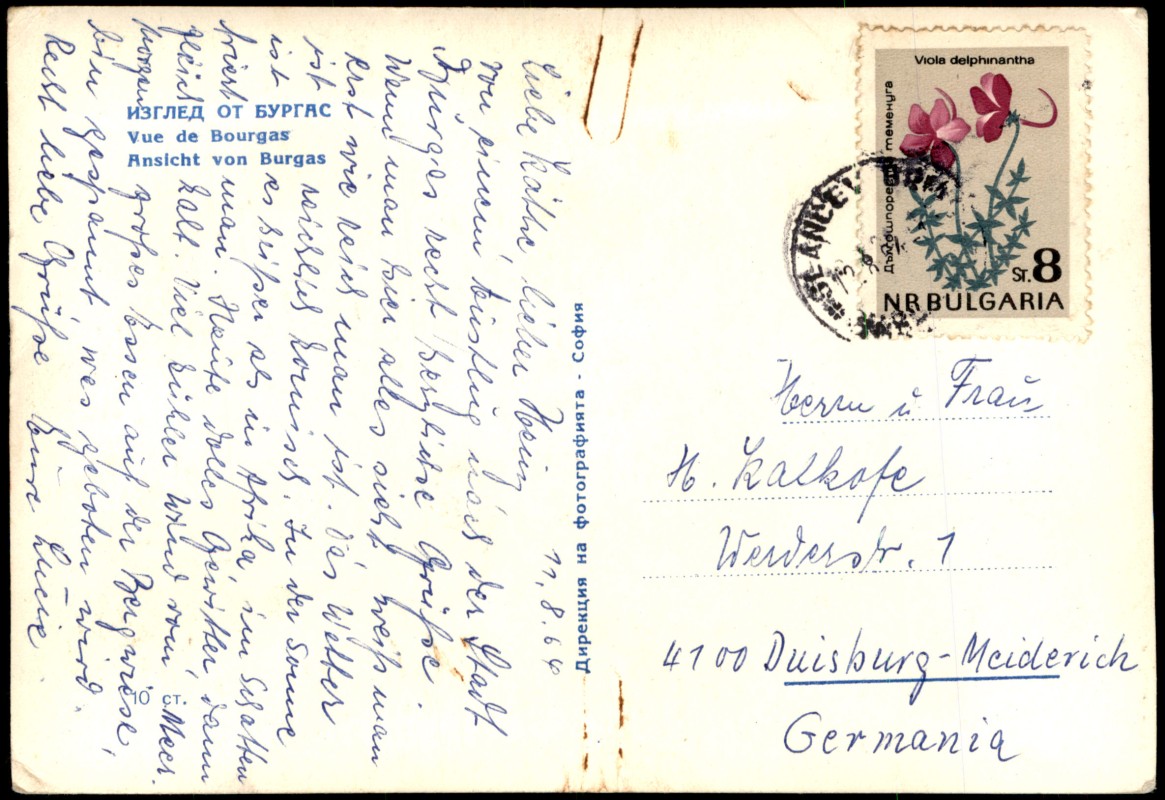 ИЗГЛЕД ОТ БУРГАС
Vue de Bourgas
Ansicht von Burgas
11.8.64
Liebe Käthe lieber Heinz
Von einem Ausflug nach der Stadt
Burgas recht herzliche Grüße.
Wenn man hier alles sieht weiß man
erst wie reich man ist. Das Wetter
ist reichlich komisch. In der Sonne
ist es heißer als in Afrika im Schatten
friert man. Heute dolles Gewitter, dann
gleich kalt. Viel kühler Wind vom Meer.
Morgen großes Essen auf der Bergwiese,
bin gespannt was geboten wird.
Recht liebe Grüße Eure Lucie.
10 ст.
Дирекция на фотографията - София
Viola delphinantha
Дългошпореста теменуга
Sт.8
NRBULGARIA
Herrn u Frau
H. Kalkofe
Werderstr. 1
4100 Duisburg-Meiderich
Germania